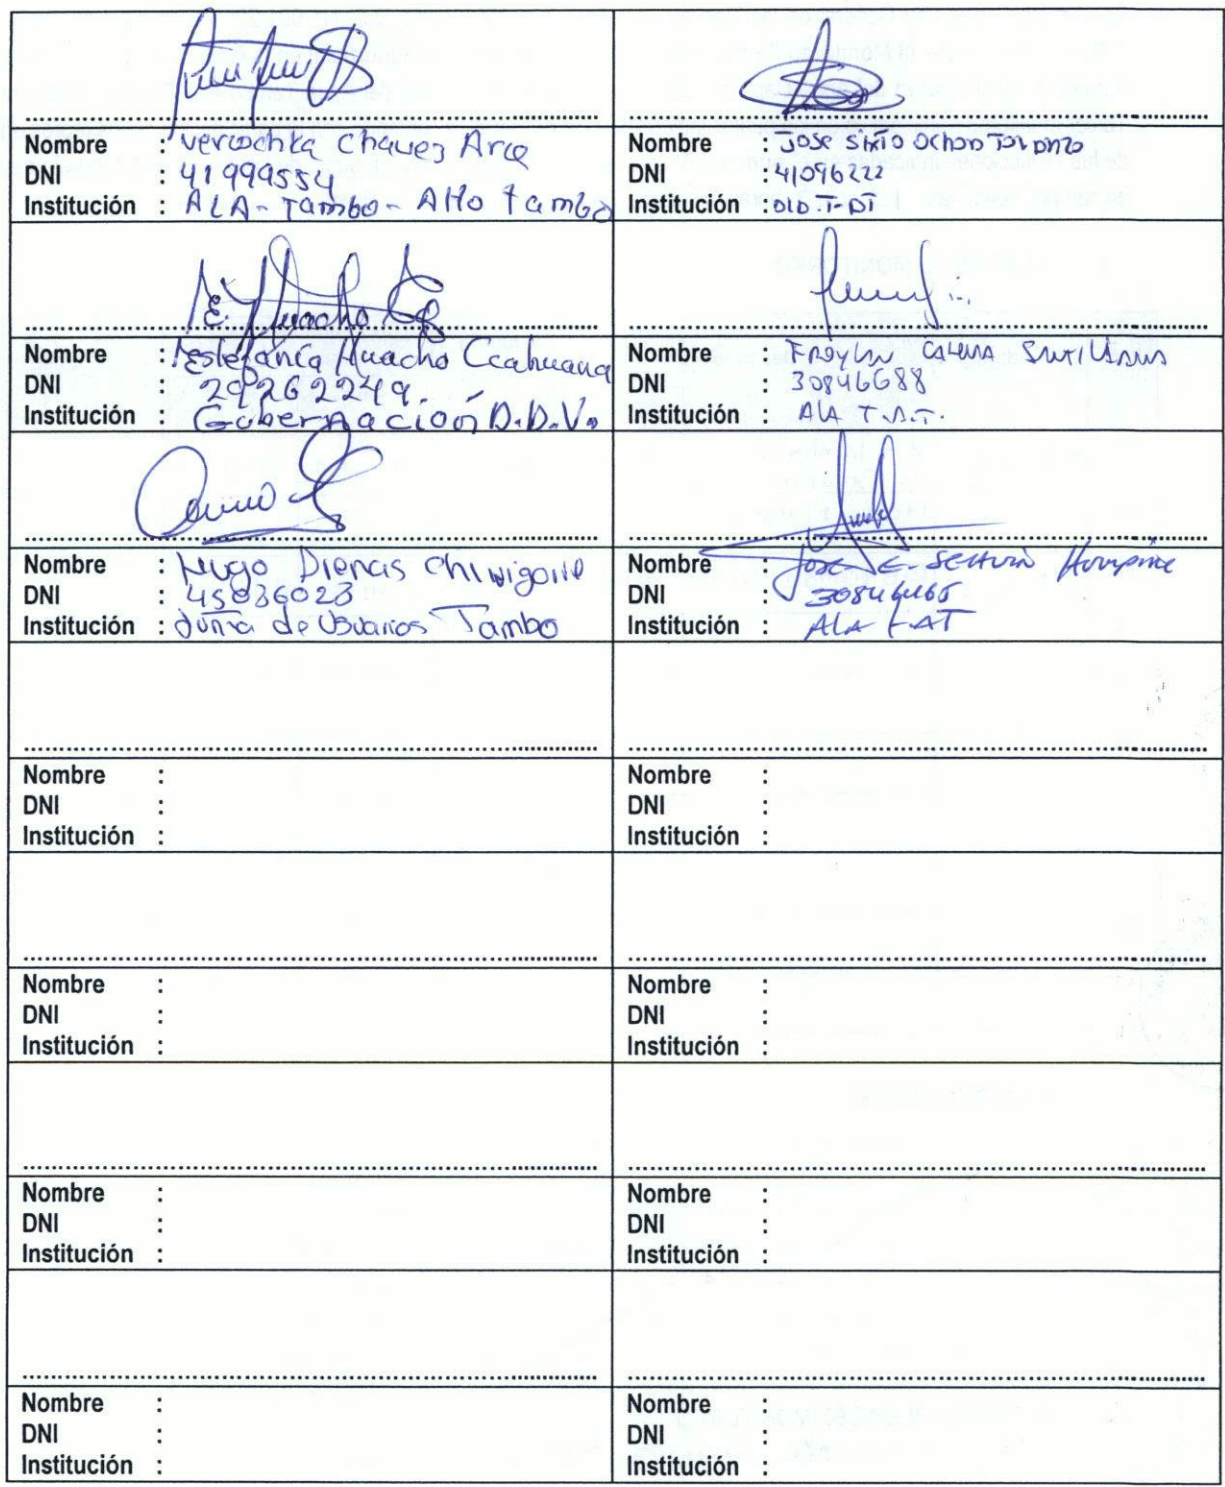 Nombre : Verochka Chavez Arce
DNI : 41999554
Institución : ALA - Tambo - Alto Tambo
Nombre : JOSE SIXTO OCHOA
DNI : 41096222
Institución :
E. Huacho
Nombre : Estefanía Huacho Ccahuana
DNI : 29262249.
Institución : Gobernación D.D.V.
Nombre : FREYLIN SANTILLANA
DNI : 30846688
Institución : ALA T.A.T.
Nombre : Hugo
DNI : 45036023
Institución : Junta de Usuarios Tambo
Nombre : JOSE E.
DNI :
Institución : ALA T.AT
Nombre :
DNI :
Institución :
Nombre :
DNI :
Institución :
Nombre :
DNI :
Institución :
Nombre :
DNI :
Institución :
Nombre :
DNI :
Institución :
Nombre :
DNI :
Institución :
Nombre :
DNI :
Institución :
Nombre :
DNI :
Institución :